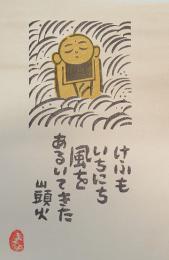 けふも
いちにち
風を
あるいてきた
山頭火